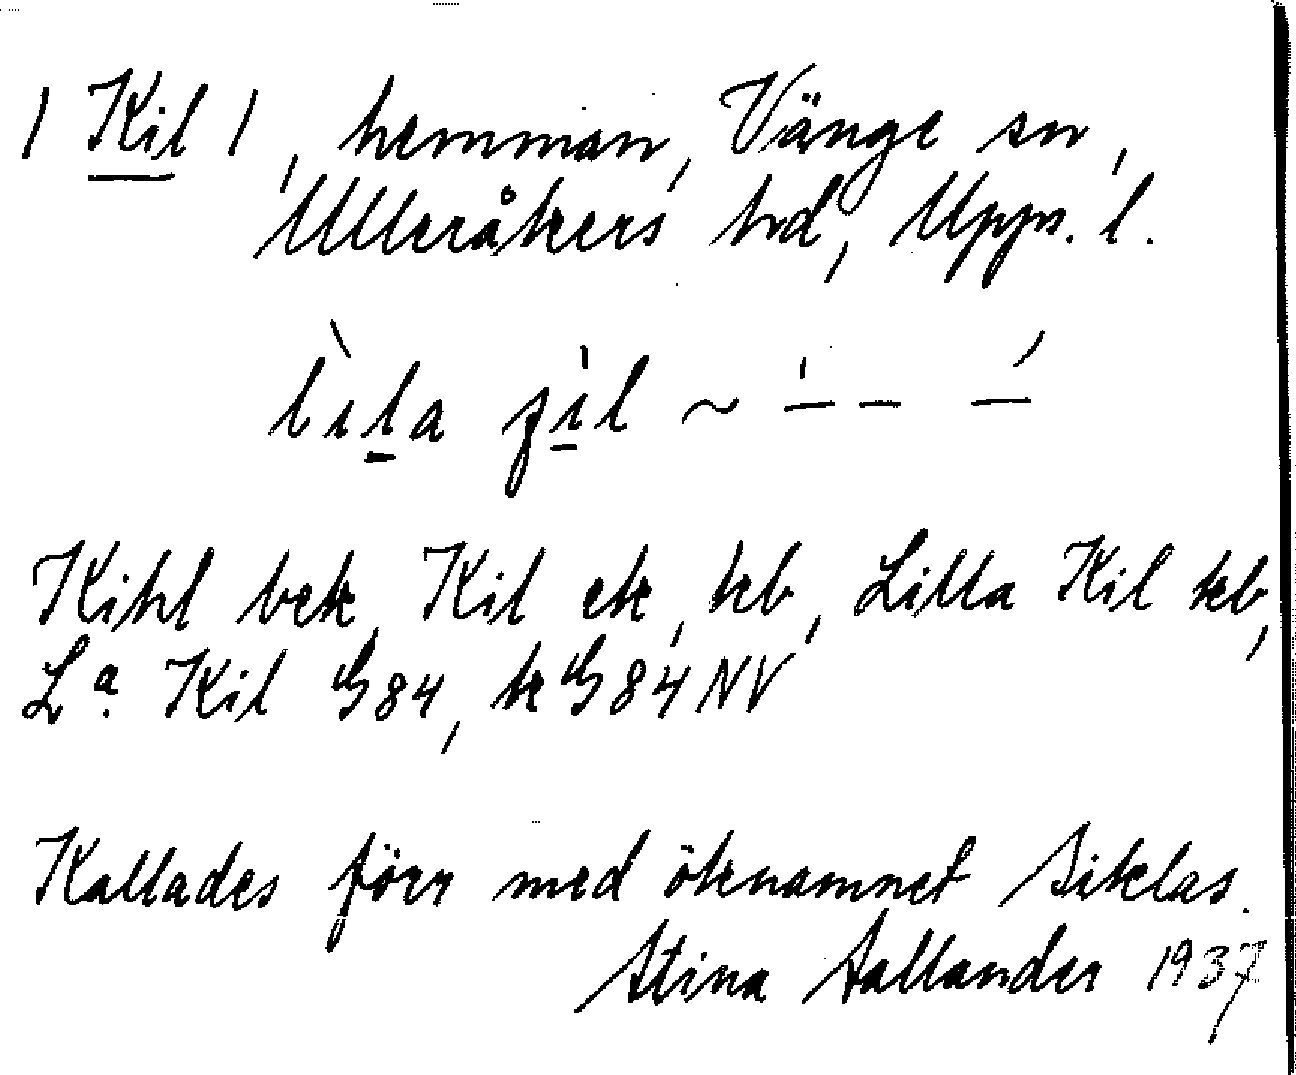 / Kil /, hemman, Vänge sn,
Ulleråkers hd, Upps. l.
Kihl bek, Kil ek, kb, Lilla Kil kb,
L.ª Kil G84, kG84NV
Kallades förr med öknamnet Siklas.
Stina Sallander 1937